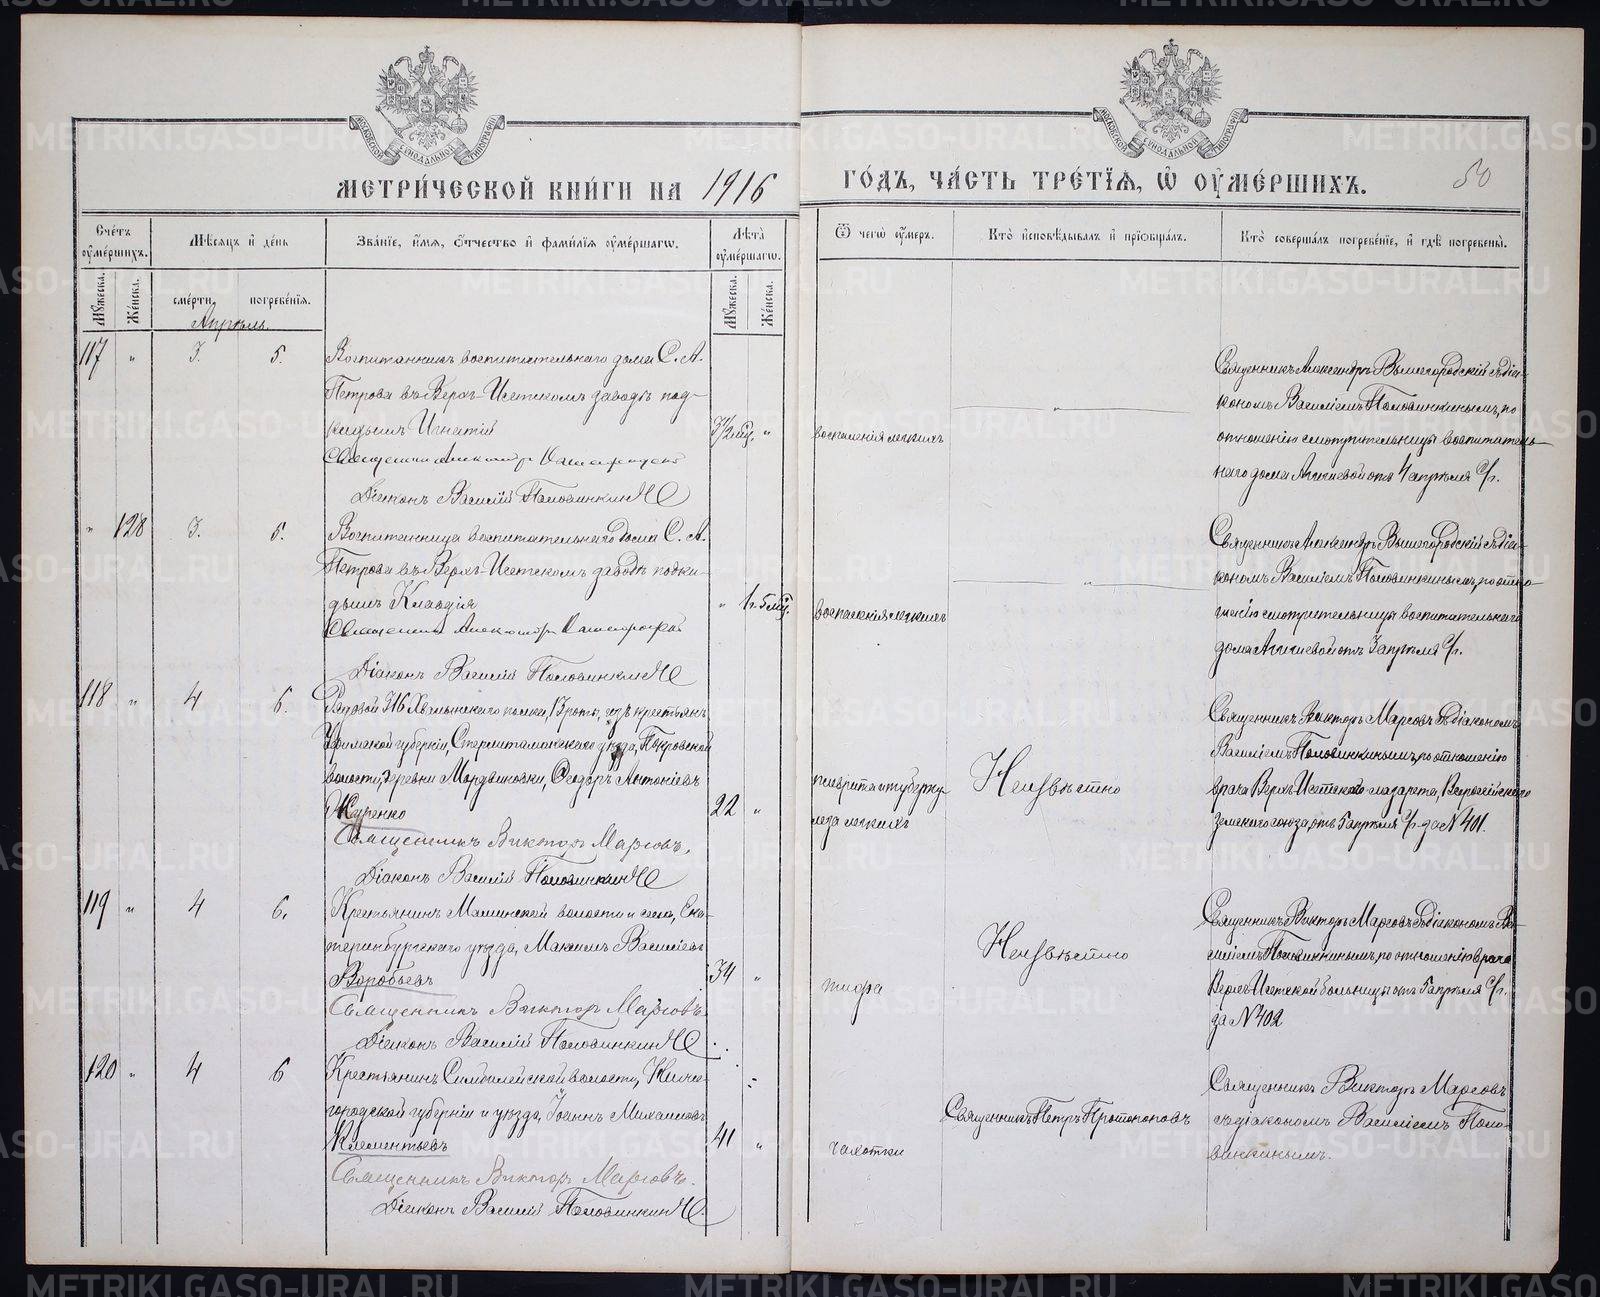 МЕТРИ́ЧЕСКОЙ КНИ́ГИ НА 1916
ГО́ДЪ, ЧА́СТЬ ТРЕ́ТІѦ, Ѡ ОУМЕ́РШИХЪ.
50
Сче́тъ оуме́ршихъ.
Мѣсѧцъ и де́нь
Зва́нїе, и́мѧ, о́тчество и фами́лїѧ оуме́ршагѡ.
Лѣта̀ оуме́ршагѡ.
Ѿ чегѡ̀ оу́меръ.
Кто̀ и́сповѣ́дывалъ и прїѡбща́лъ.
Кто̀ соверша́лъ погребе́нїе, и гдѣ̀ погребены̀.
Мꙋ́жеска.
Же́нска.
сме́рти,
погребе́нїѧ.
Мꙋ́жеска.
Же́нска.
Апрѣль.
117 " 3. 5.
Воспитанникъ воспитательнаго дома С. А.
Петрова въ Верхъ-Исетскомъ заводѣ под-
кидышъ Игнатій
Діаконъ Василій Половинкин
3 1/2 мц. "
воспаленія легкихъ
"
Священникъ Александръ Вышегородскій съ діа-
кономъ Василіемъ Половинкинымъ, по
отношенію смотрительницы воспитатель-
наго дома отъ 4 апрѣля с/г.
" 128 3. 5.
Воспитанница воспитательнаго дома С. А.
Петрова въ Верхъ-Исетскомъ заводѣ подки-
дышъ Клавдія
Діаконъ Василій Половинкин
" 1 г. 5 мц.
воспаленія легкихъ
"
Священникъ Александръ Вышегородскій съ діа-
кономъ Василіемъ Половинкинымъ, по отно-
шенію смотрительницы воспитательнаго
дома отъ 3 апрѣля с/г.
118 " 4 6.
Рядовой 316 Хвалынскаго полка, 13 роты, изъ крестьянъ
Уфимской губерніи, Стерлитамакскаго уѣзда, Покровской
волости, деревни Мордвиновки, Ѳеодоръ Антоніевъ
Журенко
Священникъ Викторъ Маровъ.
Діаконъ Василій Половинкин
22 "
плеврита и туберку-
леза легкихъ
Неизвѣстно
Священникъ Викторъ Маровъ съ діакономъ
Василіемъ Половинкинымъ, по отношенію
врача Верхъ-Исетскаго лазарета, Всероссійскаго
Земскаго союза, отъ 5 апрѣля с/г. за № 401.
119 " 4 6.
Крестьянинъ волости и села, Ека-
теринбургскаго уѣзда, Максимъ Василіевъ
Воробьевъ
Священникъ Викторъ Маровъ
Діаконъ Василій Половинкин
34 "
тифа
Неизвѣстно
Священникъ Викторъ Маровъ съ діакономъ Ва-
силіемъ Половинкинымъ, по отношенію врача
Верхъ-Исетской больницы отъ 5 апрѣля с/г.
за № 402
120 " 4 6
Крестьянинъ Симбилейской волости, Ниже-
городской губерніи и уѣзда, Іоаннъ Михаиловъ
Клементьевъ
Священникъ Викторъ Маровъ.
Діаконъ Василій Половинкин
41 "
чахотки
Священникъ Петръ Протопоповъ
Священникъ Викторъ Маровъ
съ діакономъ Василіемъ Поло-
винкинымъ.